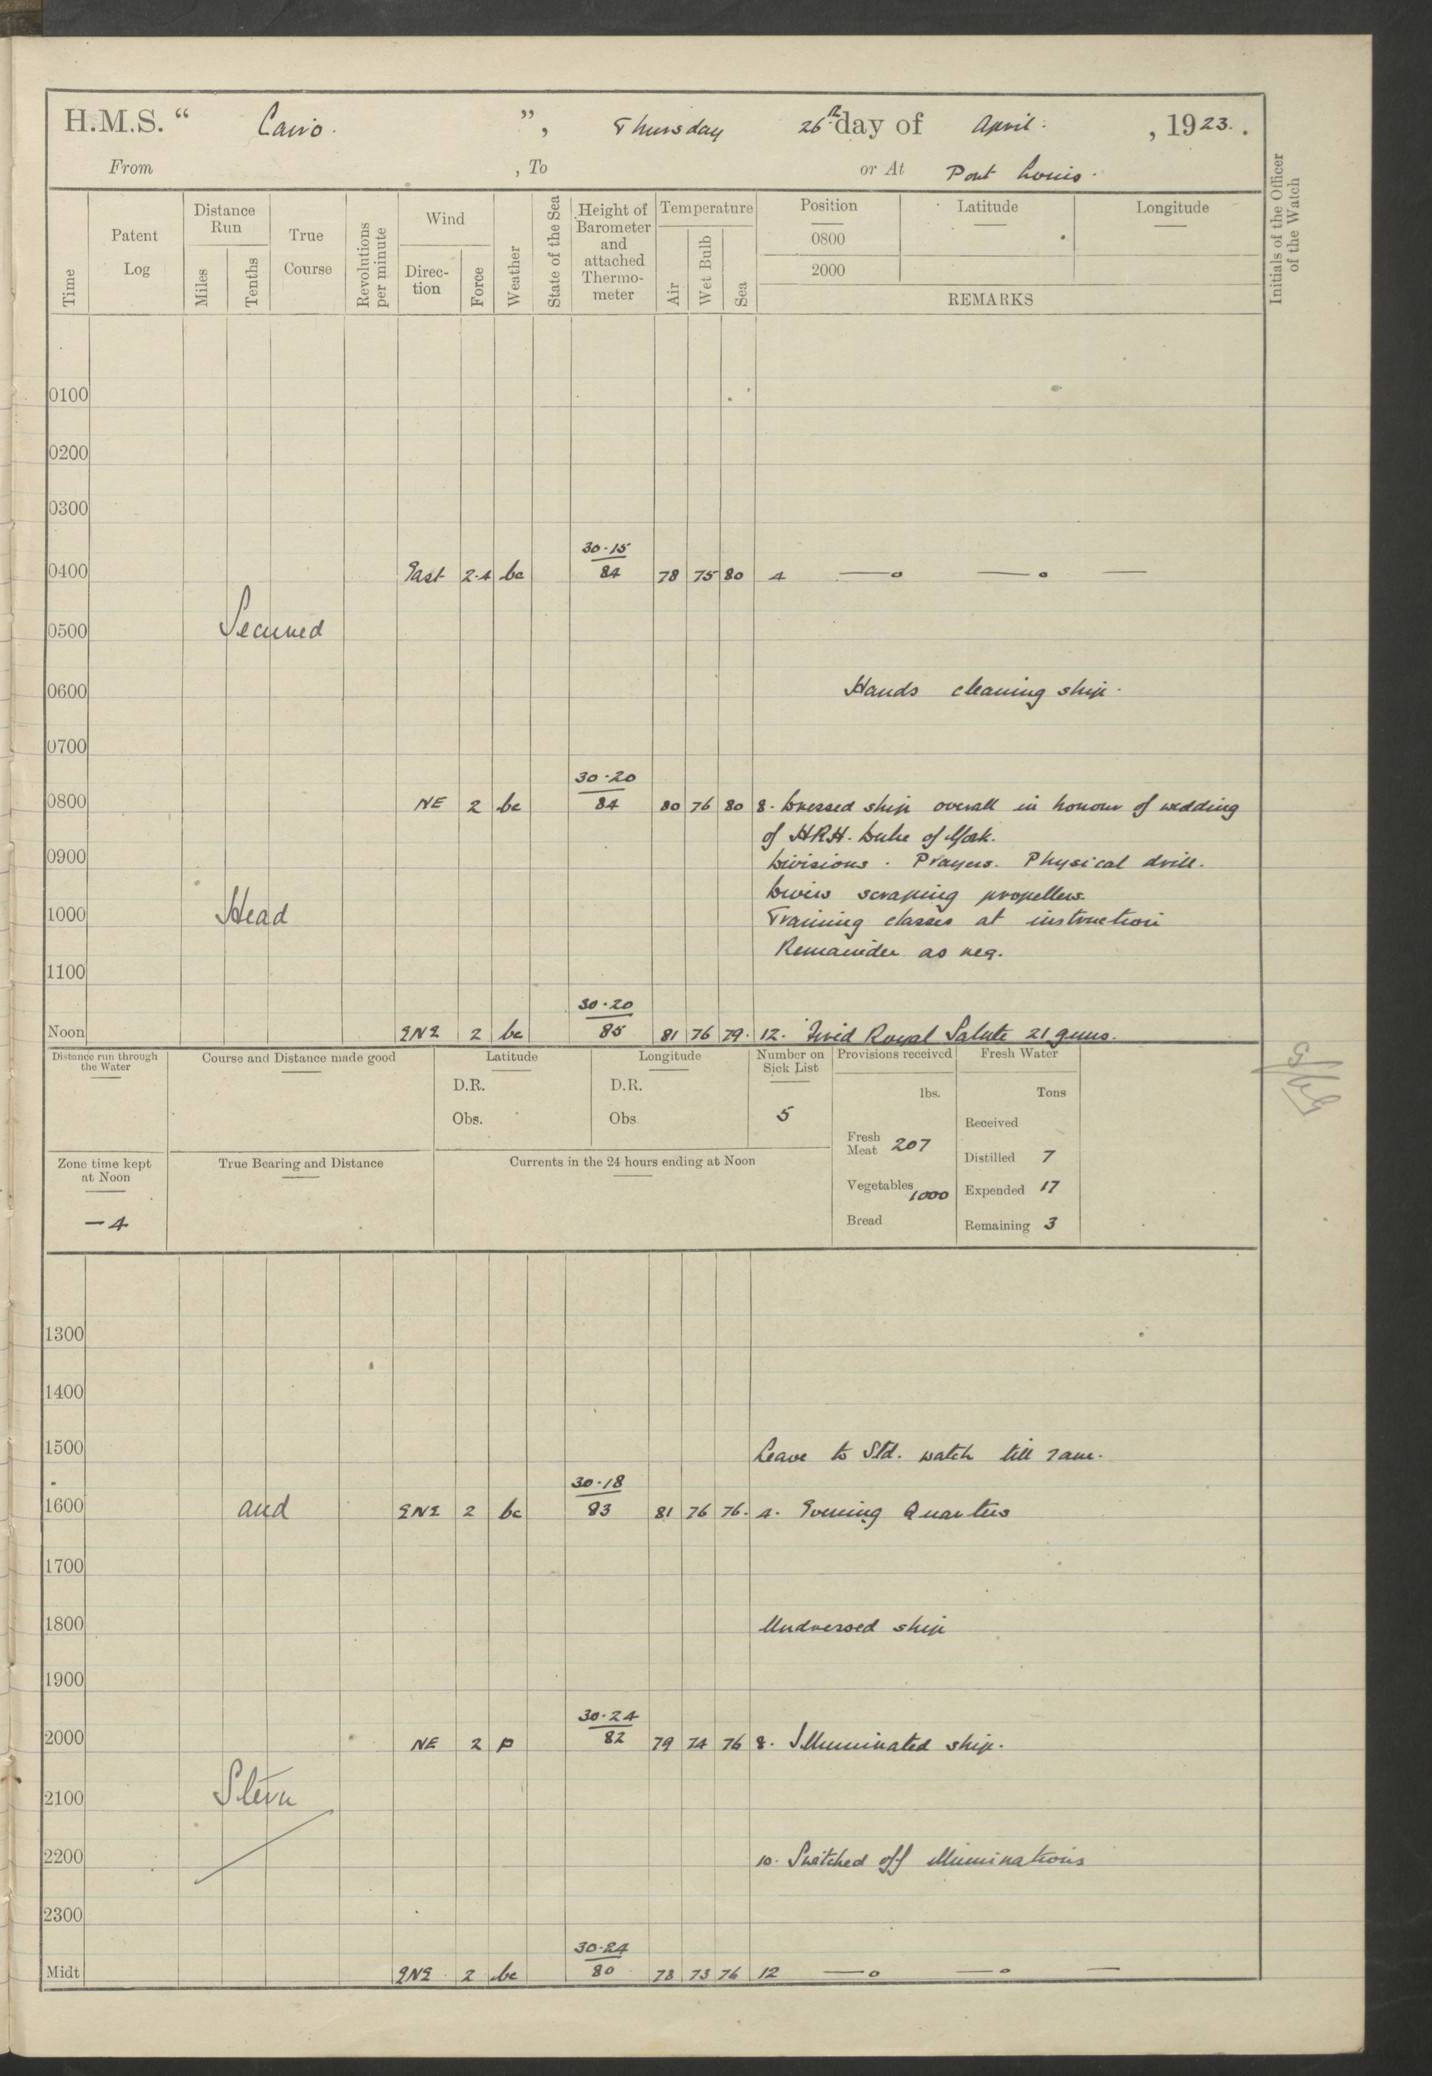 H.M.S. “ Cairo. ”, Thursday 26th day of April. , 1923. .
From , To or At Port Louis.
Time Patent Log Distance Run Miles Tenths True Course Revolutions per minute Wind Direc-tion Force Weather State of the Sea Height of Barometer and attached Thermo-meter Temperature Air Wet Bulb Sea Position 0800 2000 Latitude Longitude
REMARKS
Initials of the Officer of the Watch
0100
0200
0300
30.15
0400 East 2.4 bc 84 78 75 80 4 —o —o —
0500 Secured
0600 Hands cleaning ship.
0700
30.20
0800 NE 2 bc 84 80 76 80 8. Dressed ship overall in honour of wedding
of H.R.H. Duke of York.
0900 Divisions. Prayers. Physical drill.
Divers scraping propellers.
1000 Head Training classes at instruction
Remainder as req.
1100
30.20
Noon ENE 2 bc 85 81 76 79. 12. Fired Royal Salute 21 guns.
Distance run through the Water Course and Distance made good Latitude Longitude Number on Sick List Provisions received Fresh Water
D.R. D.R. lbs. Tons
Obs. Obs 5 Received
Fresh Meat 207 Distilled 7
Zone time kept at Noon True Bearing and Distance Currents in the 24 hours ending at Noon
Vegetables 1000 Expended 17
- 4 Bread Remaining 3
1300
1400
1500 Leave to Std. watch till 7 am.
30.18
1600 and ENE 2 bc 83 81 76 76. 4. Evening Quarters
1700
1800 Undressed ship
1900
30.24
2000 NE 2 p 82 79 74 76 8. Illuminated ship.
2100 Stern
2200 10. Switched off illuminations
2300
30.24
Midt ENE. 2 bc 80 78 73 76 12 —o —o —